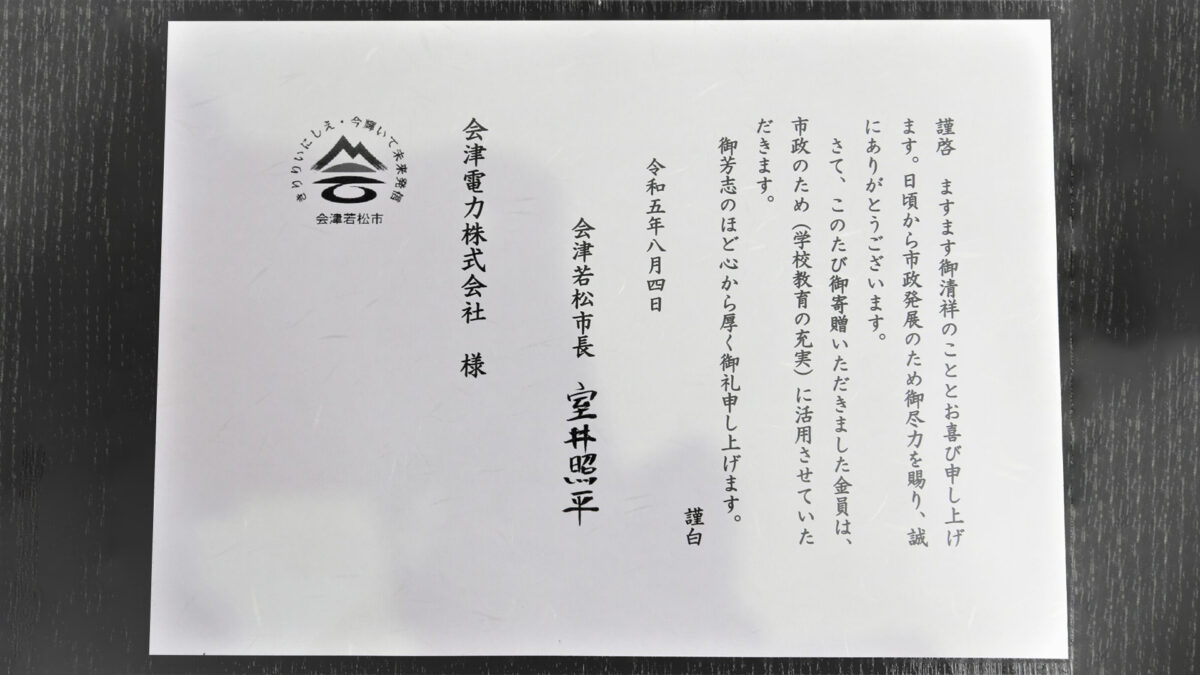 謹啓　ますます御清祥のこととお喜び申し上げ
ます。日頃から市政発展のため御尽力を賜り、誠
にありがとうございます。
さて、このたび御寄贈いただきました金員は、
市政のため（学校教育の充実）に活用させていた
だきます。
御芳志のほど心から厚く御礼申し上げます。
謹白
令和五年八月四日
会津若松市長　室井照平
会津電力株式会社　様
きりりいにしえ・今輝いて未来発信
会津若松市